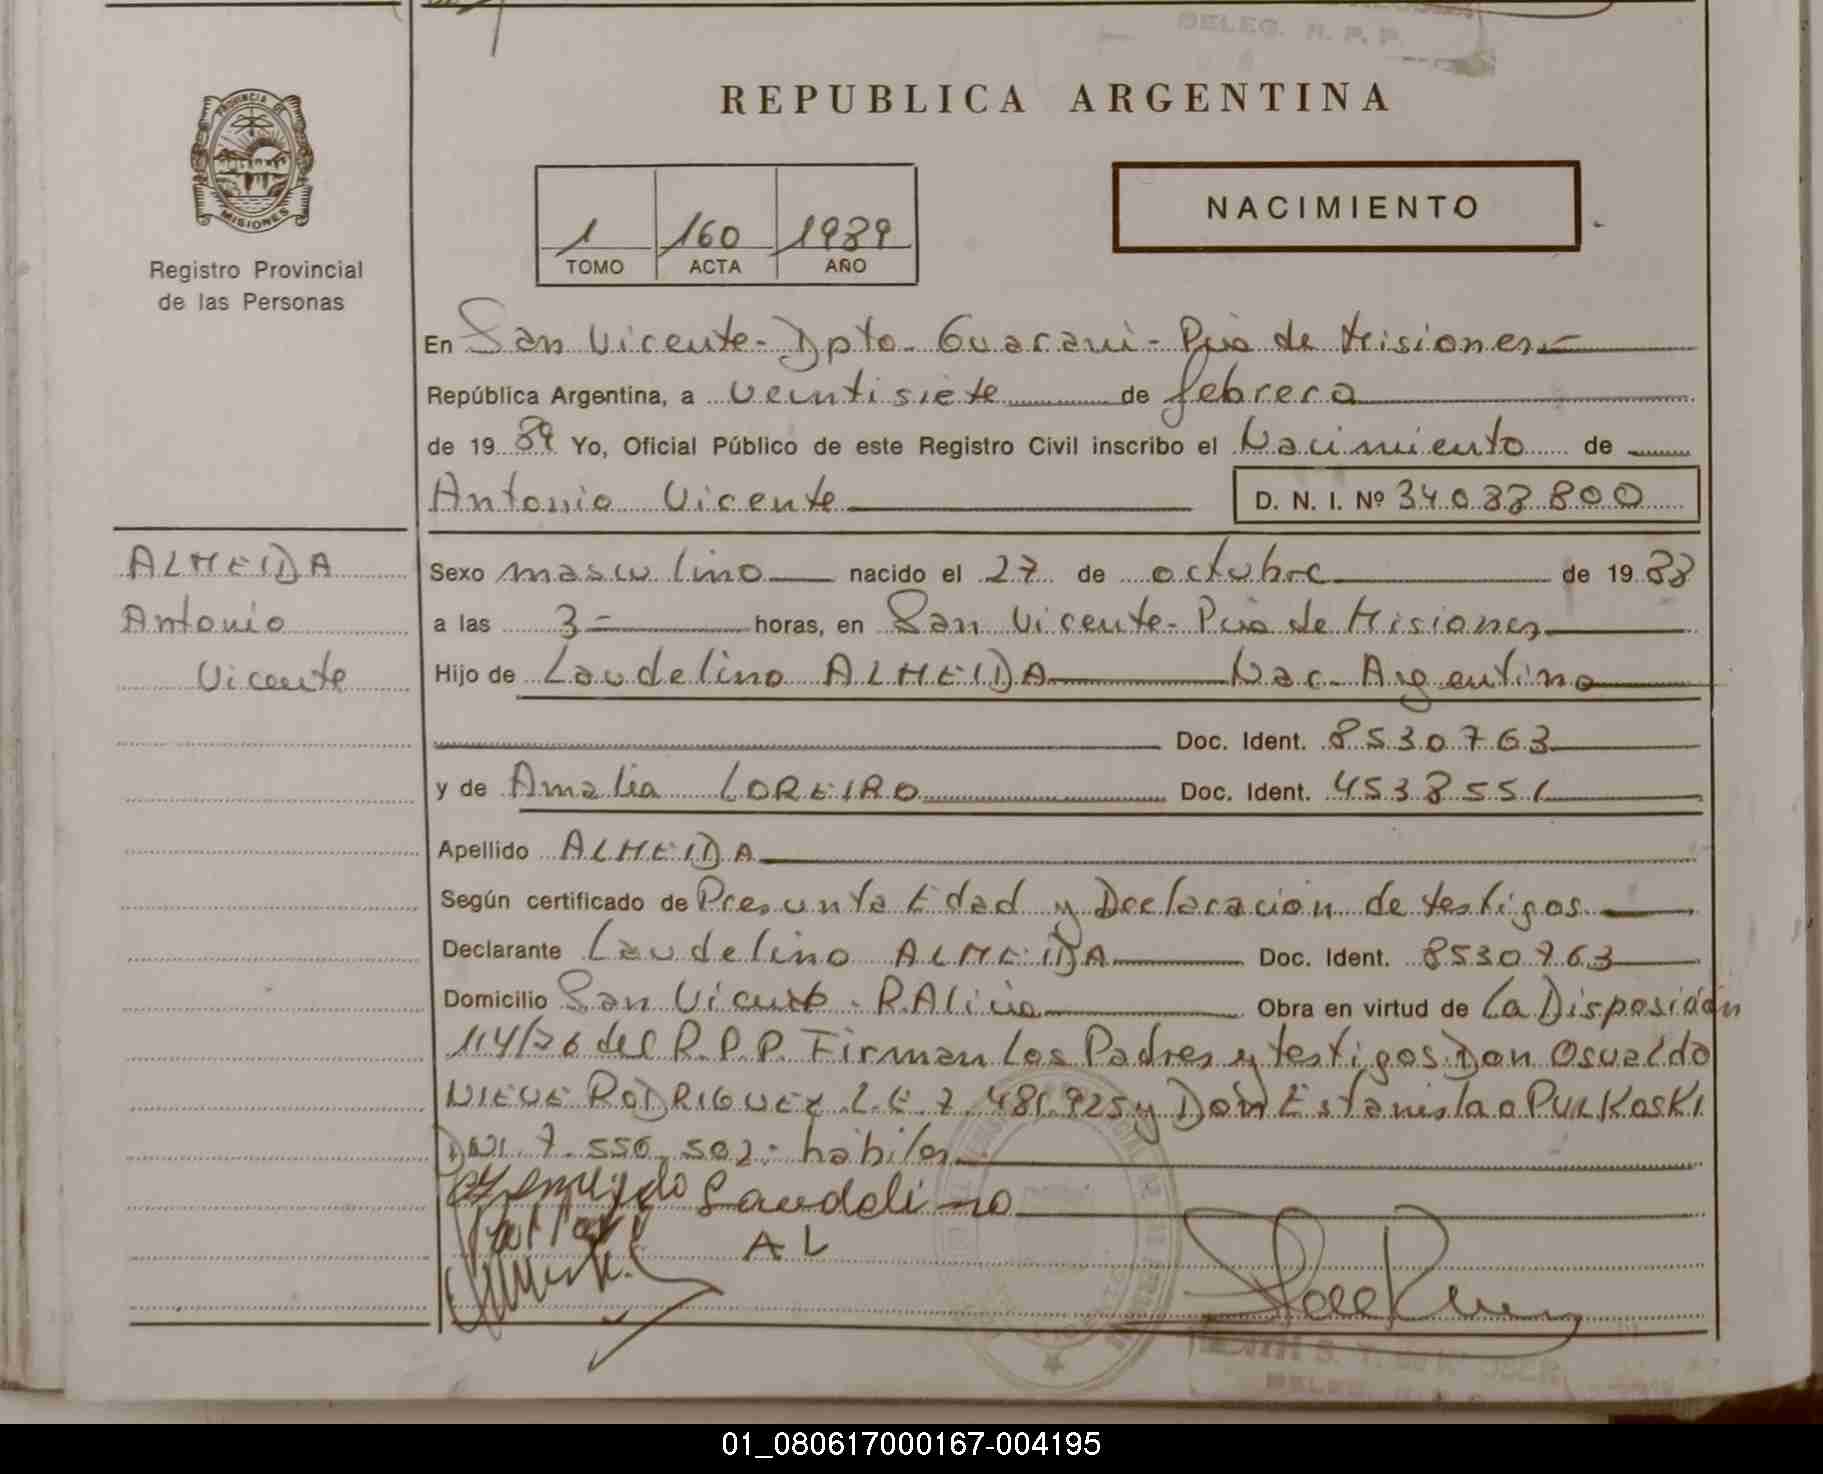 DELEG. R. P. P.
REPUBLICA ARGENTINA
PROVINCIA DE
MISIONES
Registro Provincial
de las Personas
1 160 1989
TOMO ACTA AÑO
NACIMIENTO
En San Vicente - Dpto. Guaraní - Pcia de Misiones
República Argentina, a veintisiete de febrero
de 19 89 Yo, Oficial Público de este Registro Civil inscribo el Nacimiento de
Antonio Vicente D. N. I. Nº 34.088.800
ALMEIDA
Antonio
Vicente
Sexo masculino nacido el 27 de octubre de 19 88
a las 3 - horas, en San Vicente - Pcia de Misiones
Hijo de Laudelino ALMEIDA Nac. Argentino
Doc. Ident. 8530763
y de Amalia LOREIRO Doc. Ident. 4538551
Apellido ALMEIDA
Según certificado de Presunta Edad y Declaración de testigos
Declarante Laudelino ALMEIDA Doc. Ident. 8530763
Domicilio San Vicente - R. Alicia Obra en virtud de La Disposición
114/76 del R.P.P. Firman los Padres y testigos Don Osvaldo
NIEVE RODRIGUEZ L.E. 7.481.925 y Don Estanislao PULKOSKI
DNI. 7.556.502 - hábiles
Laudelino
AL
01_080617000167-004195